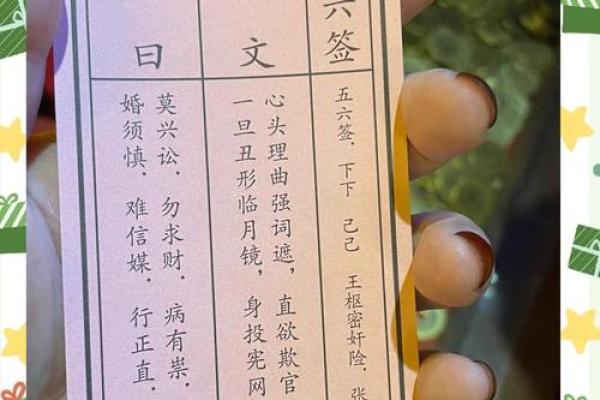 六签
五六签．下下　己己　王枢密奸险．张
文
心头理曲强词遮，直欲欺官
一旦丑形临月镜，身投宪网
曰
莫兴讼．勿求财．病有祟．
婚须慎．难信媒．行正直．